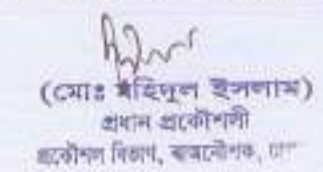 (মোঃ শহিদুল ইসলাম)
প্রধান প্রকৌশলী
প্রকৌশল বিভাগ,